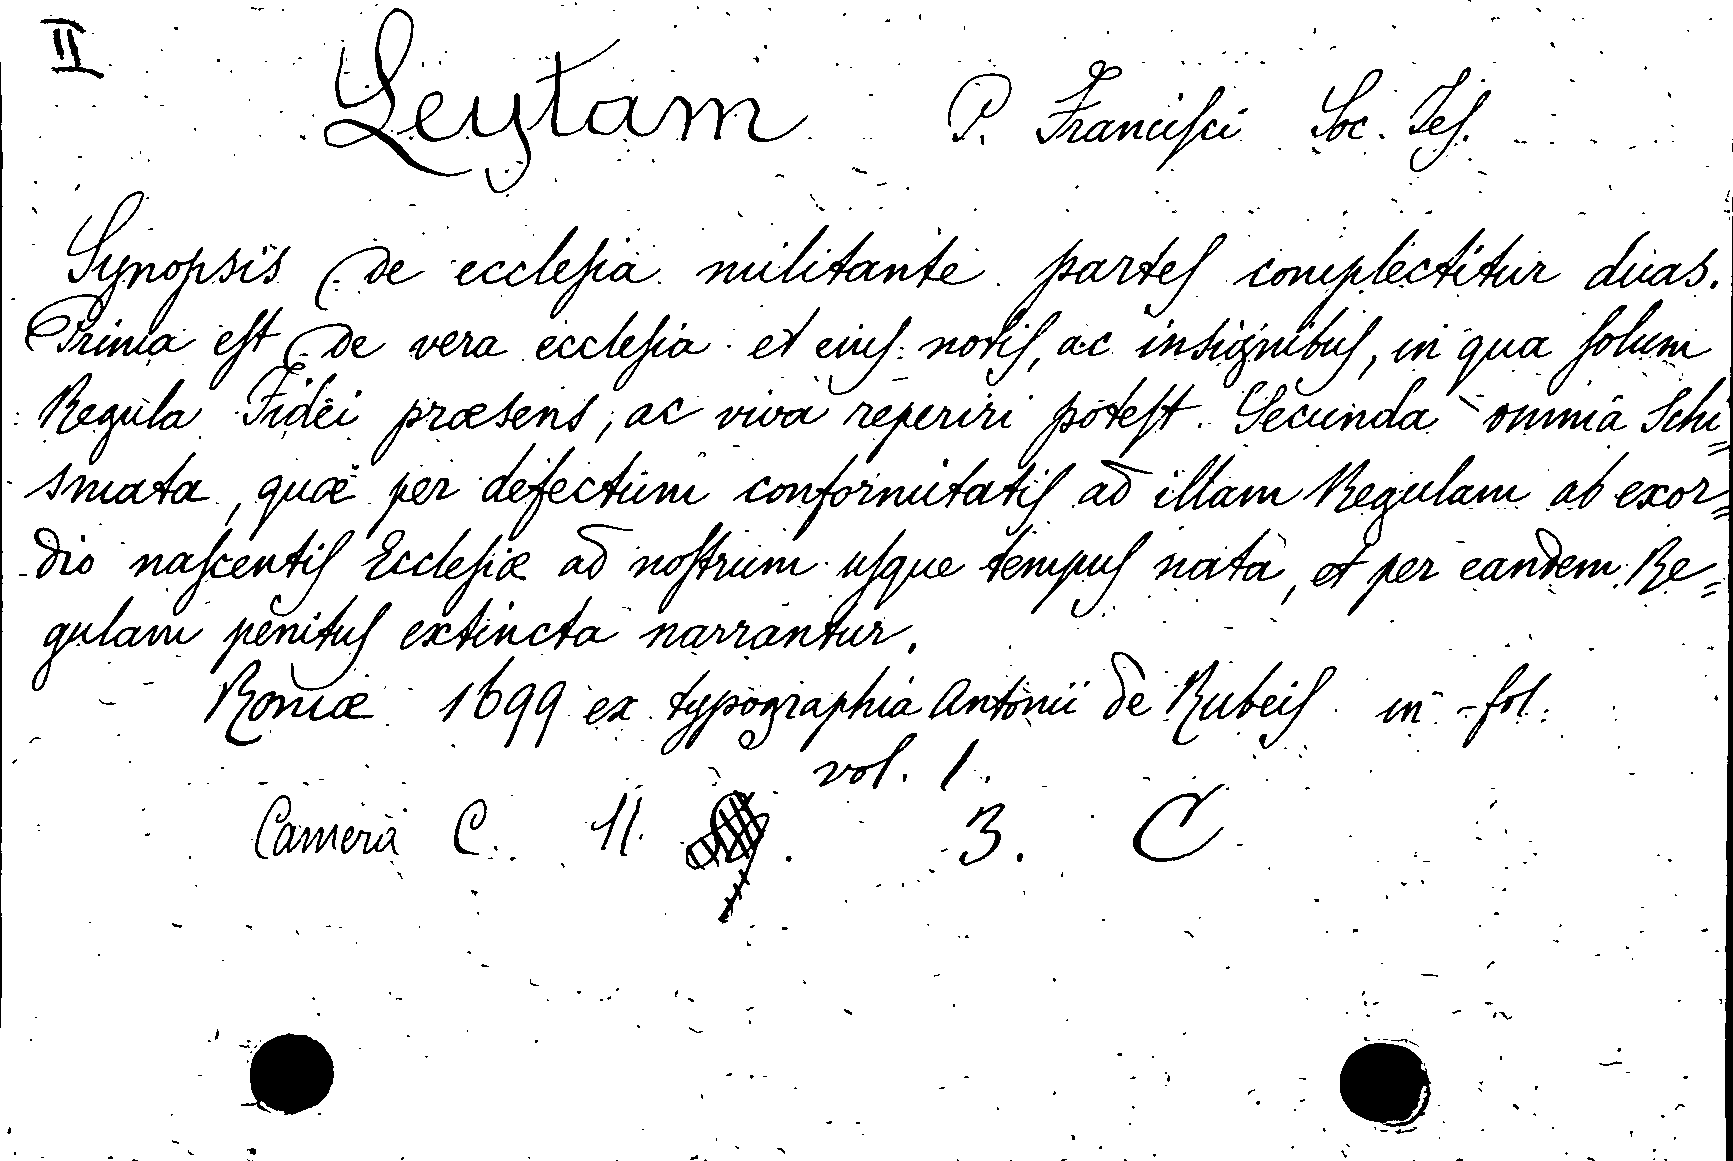 II
Leytam P. Francisci Soc. Jes.
Synopsis de ecclesia militante partes complectitur duas.
Prima est de vera ecclesia et eius notis, ac insignibus, in qua solum
Regula Fidei præsens, ac viva reperiri potest. Secunda omnia Schi=
smata, quæ per defectum conformitatis ad illam Regulam ab exor=
dio nascentis Ecclesiæ ad nostrum usque tempus nata, et per eandem Re=
gulam penitus extincta narrantur.
Romæ 1699 ex typographia Antonii de Rubeis in-fol.
vol. 1.
Camera C. 11. 3. C